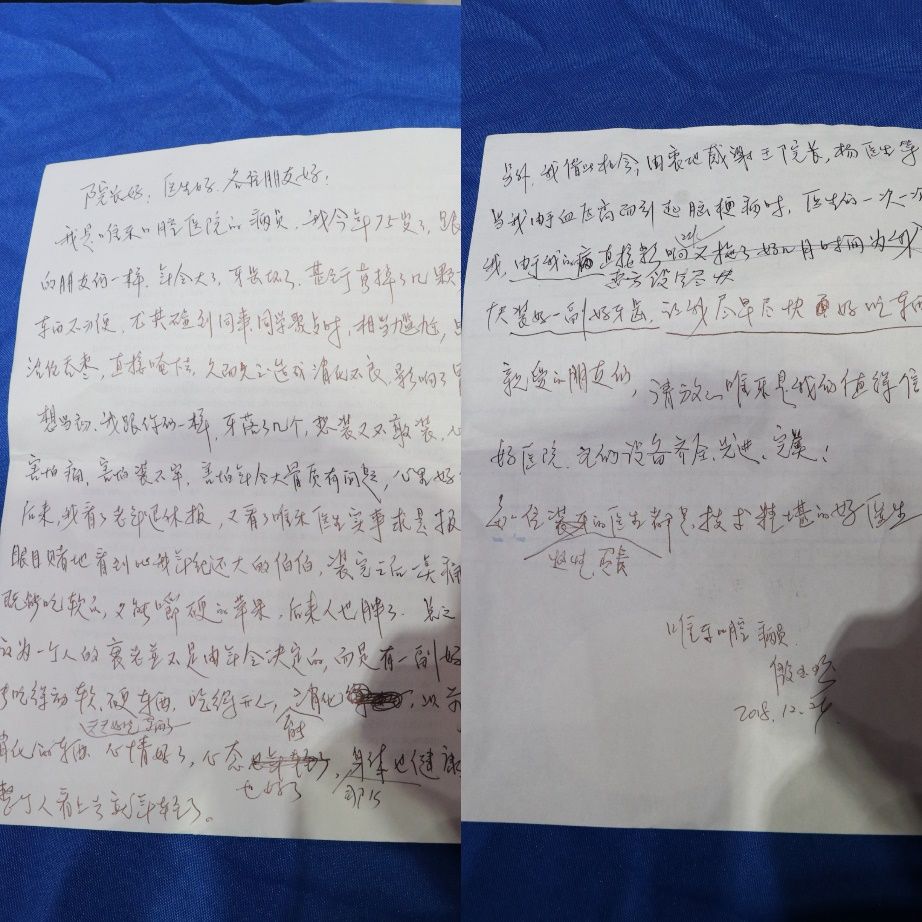 院长好，医生好，各位朋友好！
我是唯乐口腔医院的病员，我今年75岁了，跟
的朋友们一样，年令大了，牙齿坏了，甚至于真掉了几颗
东西不方便，尤其碰到同事同学聚会时，相当尴尬，
囵吞枣，直接咽下去，久而久之造成消化不良，影响了胃
想当初，我跟你们一样，牙落了几个，想装又不敢装，心
害怕痛，害怕装不牢，害怕年令大骨质有问题，心里好
后来，我看了老年退休报，又看了唯乐医生实事求是报
眼目睹地看到比我年纪还大的伯伯，装完之后一点
既能吃软的，又能嚼硬的苹果，后来人也胖了。总之
认为一个人的衰老並不是由年令决定的，而是有一副好
吃得动软、硬东西，吃得开心，消化，以前
能
消化的东西 心情好了，心态，身体也健康
也好了
整个人看上去就年轻了。
另外，我借此机会，由衷地感谢王院长，杨医生等
当我由于血压高而引起脑梗病时，医生们一次一次
我，由于我的病直接影响又拖了好几月时间为我
要方设法尽快
快装好一副好牙齿，让我尽早尽快好吃东西
亲爱的朋友们，请放心唯乐是我们值得信
好医院，它们设备齐全，先进，完美！
每一位的医生都是技术精堪的好医生
负责
唯乐口腔病员
2018.12.26